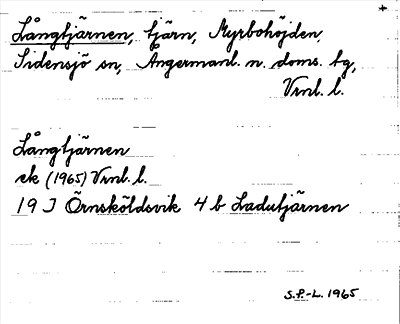 Långtjärnen, tjärn, Myrbohöjden,
Sidensjö sn, Ångermanl. n. doms. tg,
Vrnl. l.
Långtjärnen
ek (1965) Vrnl. l.
19 J Örnsköldsvik 4 b Ladutjärnen
S.P.-L. 1965